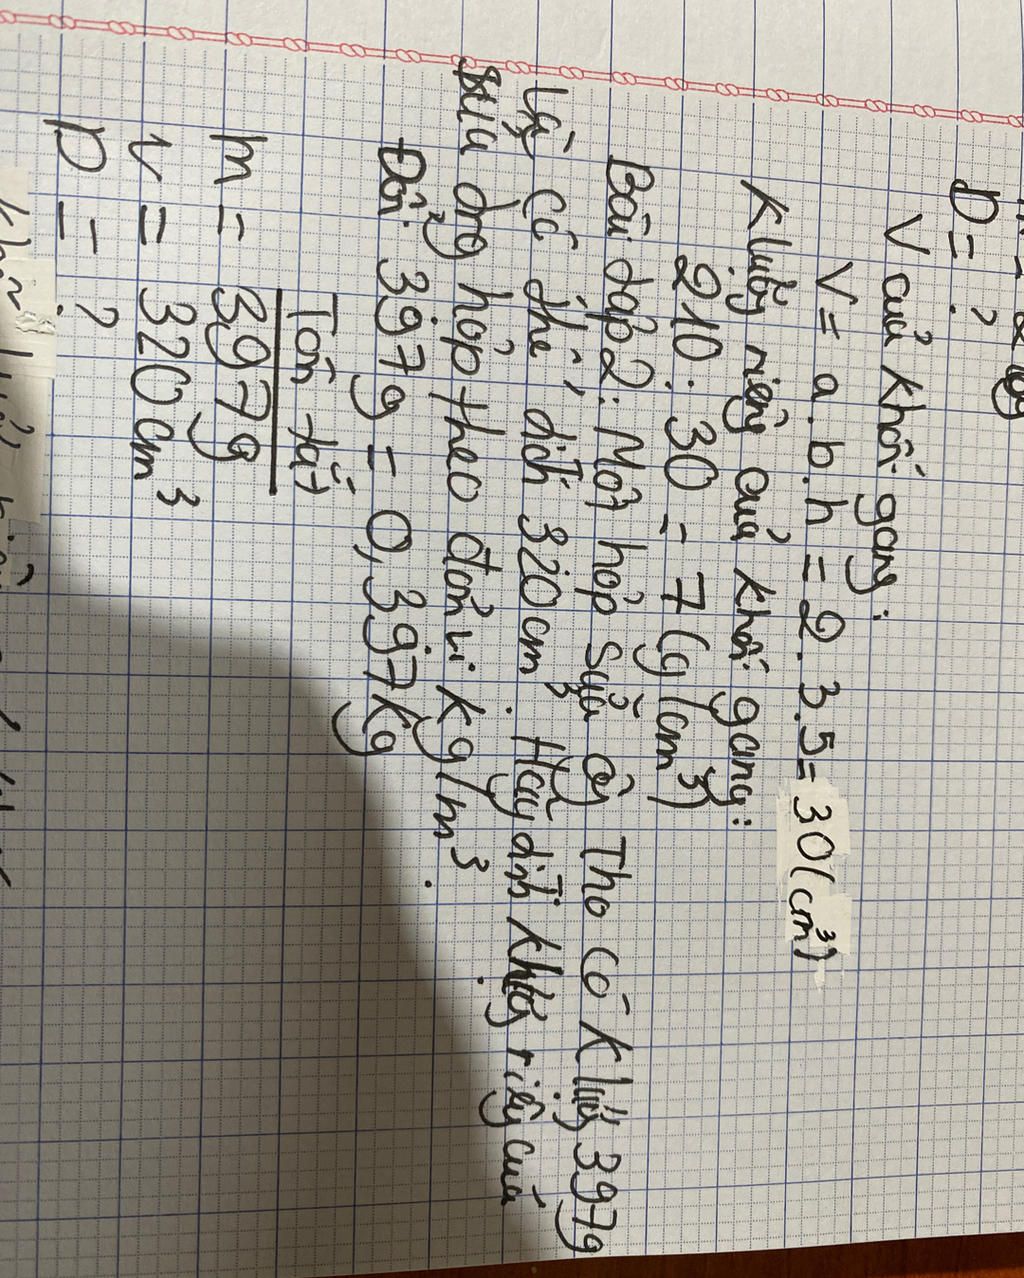 D = ?
V của khối gang:
V = a.b.h = 2.3.5 = 30 (cm³)
K lượng riêng của khối gang:
210 : 30 = 7 (g/cm³)
Bài tập 2: Một hộp sữa ông Thọ có K lượng 397g
và có thể tích 320cm³. Hãy tính khối lượng riêng của
sữa trong hộp theo đơn vị kg/m³.
Đổi 397g = 0,397kg
Tóm tắt
m = 397g
V = 320cm³
D = ?